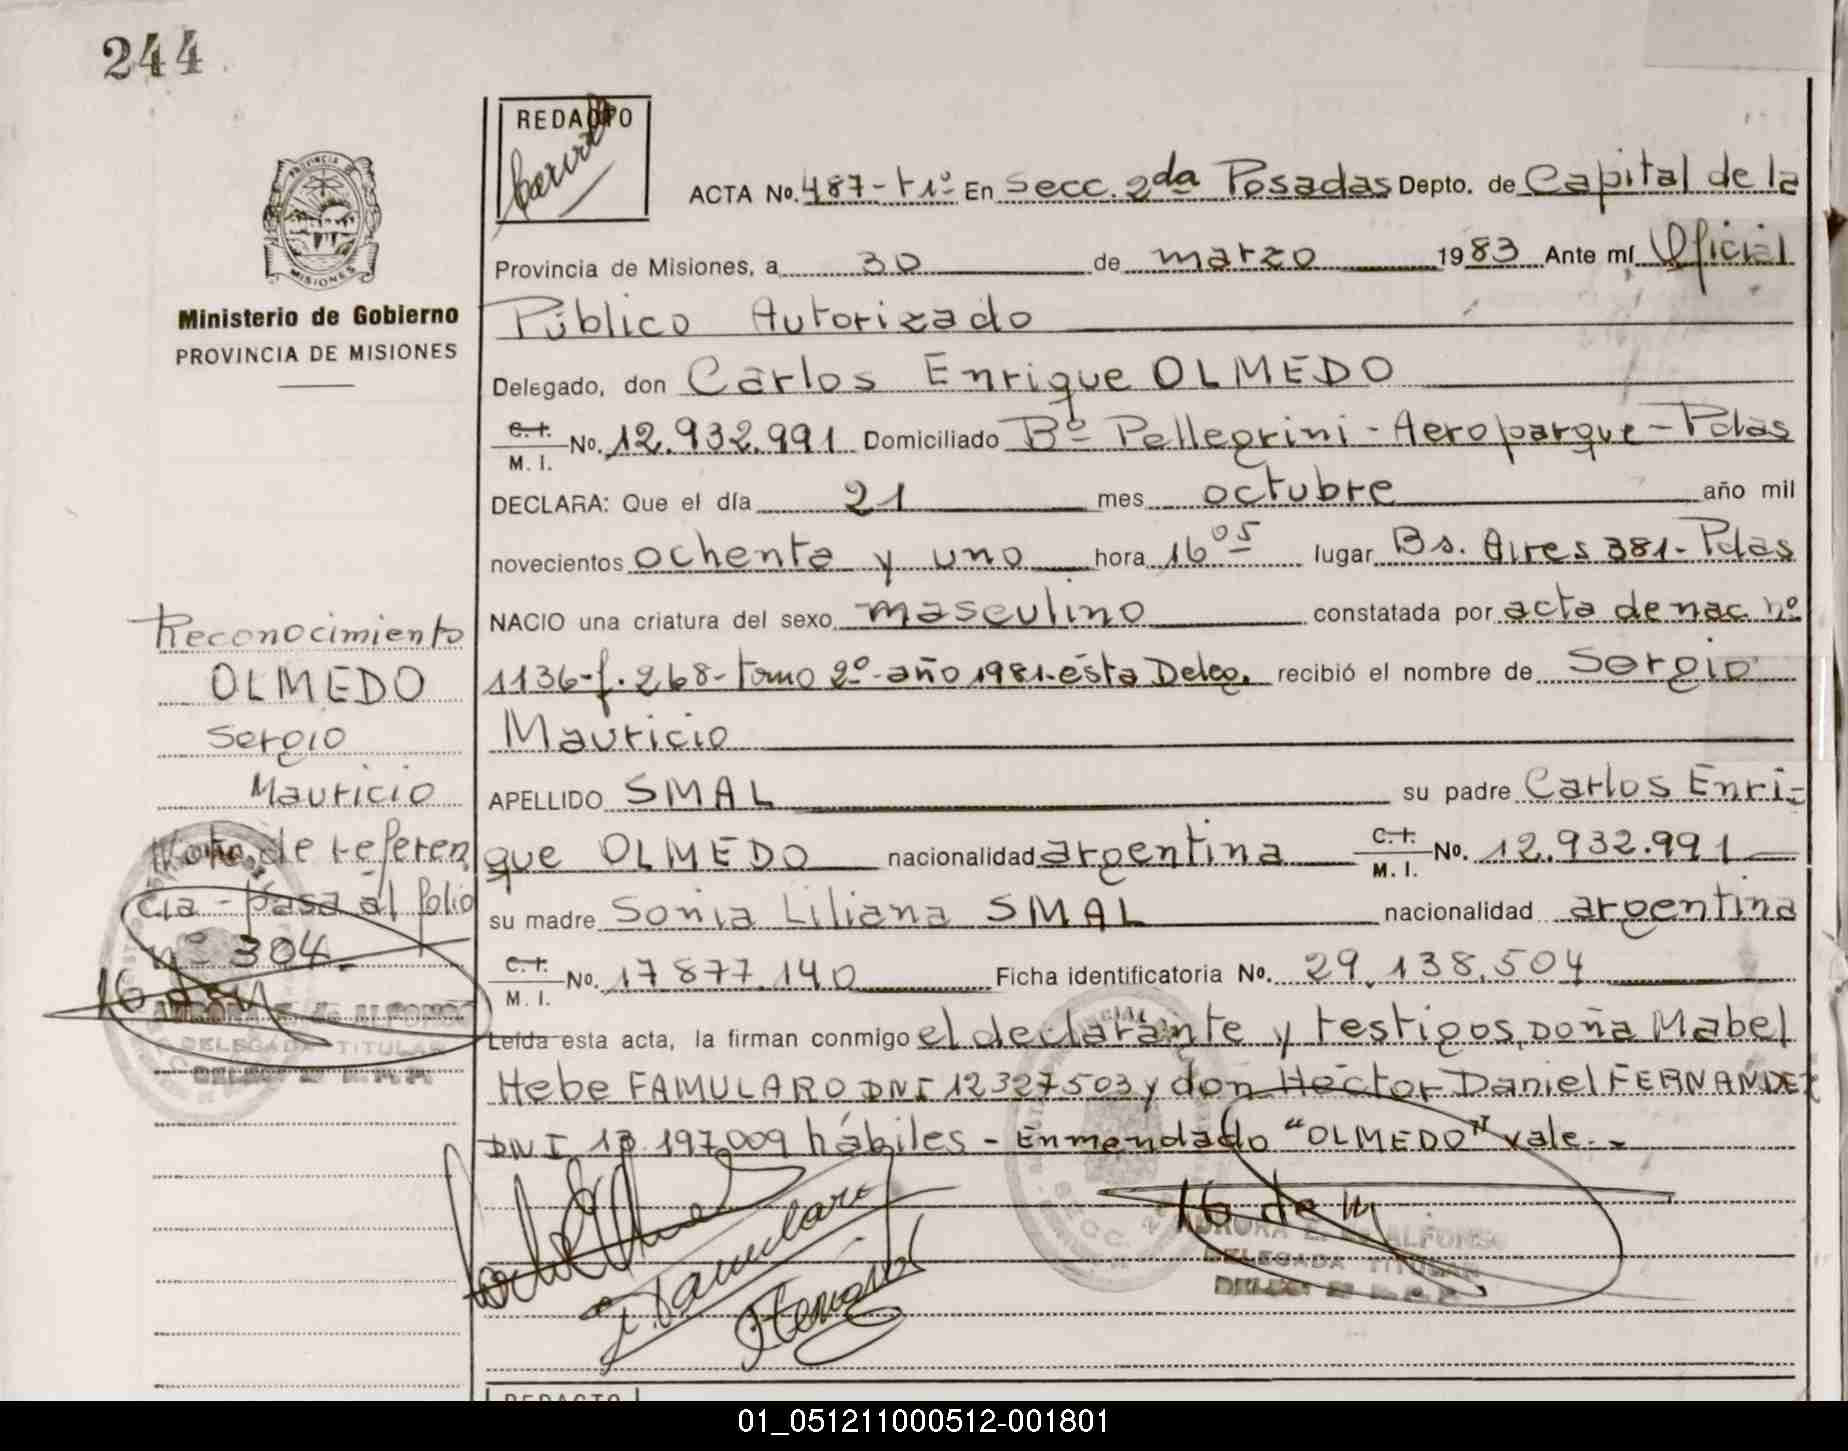 244
REDACTO
ACTA No. 487-t1º En Secc. 2da Posadas Depto. de Capital de la
Provincia de Misiones, a 30 de marzo 1983 Ante mí Oficial
Público Autorizado
Ministerio de Gobierno
PROVINCIA DE MISIONES
Delegado, don Carlos Enrique OLMEDO
C.I. M.I. No. 12.932.991 Domiciliado Bº Pellegrini - Aeroparque - Pdas
DECLARA: Que el día 21 mes octubre año mil
novecientos ochenta y uno hora 16 05 lugar Bs. Aires 381 - Pdas
NACIO una criatura del sexo masculino constatada por acta de nac. nº
1136-f. 268- tomo 2º- año 1981- ésta Deleg. recibió el nombre de Sergio
Mauricio
APELLIDO SMAL su padre Carlos Enri-
que OLMEDO nacionalidad argentina C.I. M.I. No. 12.932.991
su madre Sonia Liliana SMAL nacionalidad argentina
C.I. M.I. No. 17877.140 Ficha identificatoria No. 29.138.504
Leída esta acta, la firman conmigo el declarante y testigos, doña Mabel
Hebe FAMULARO DNI 12327503 y don Héctor Daniel FERNANDEZ
DNI 13.197.009 hábiles - Enmendado "OLMEDO" vale.-
Reconocimiento
OLMEDO
Sergio
Mauricio
Nota de referen
cia - pasa al folio
nº 304.-
AURORA E. de ALFONSO
DELEGADA TITULAR
AURORA E. de ALFONSO
DELEGADA TITULAR
REDACTO
01_051211000512-001801